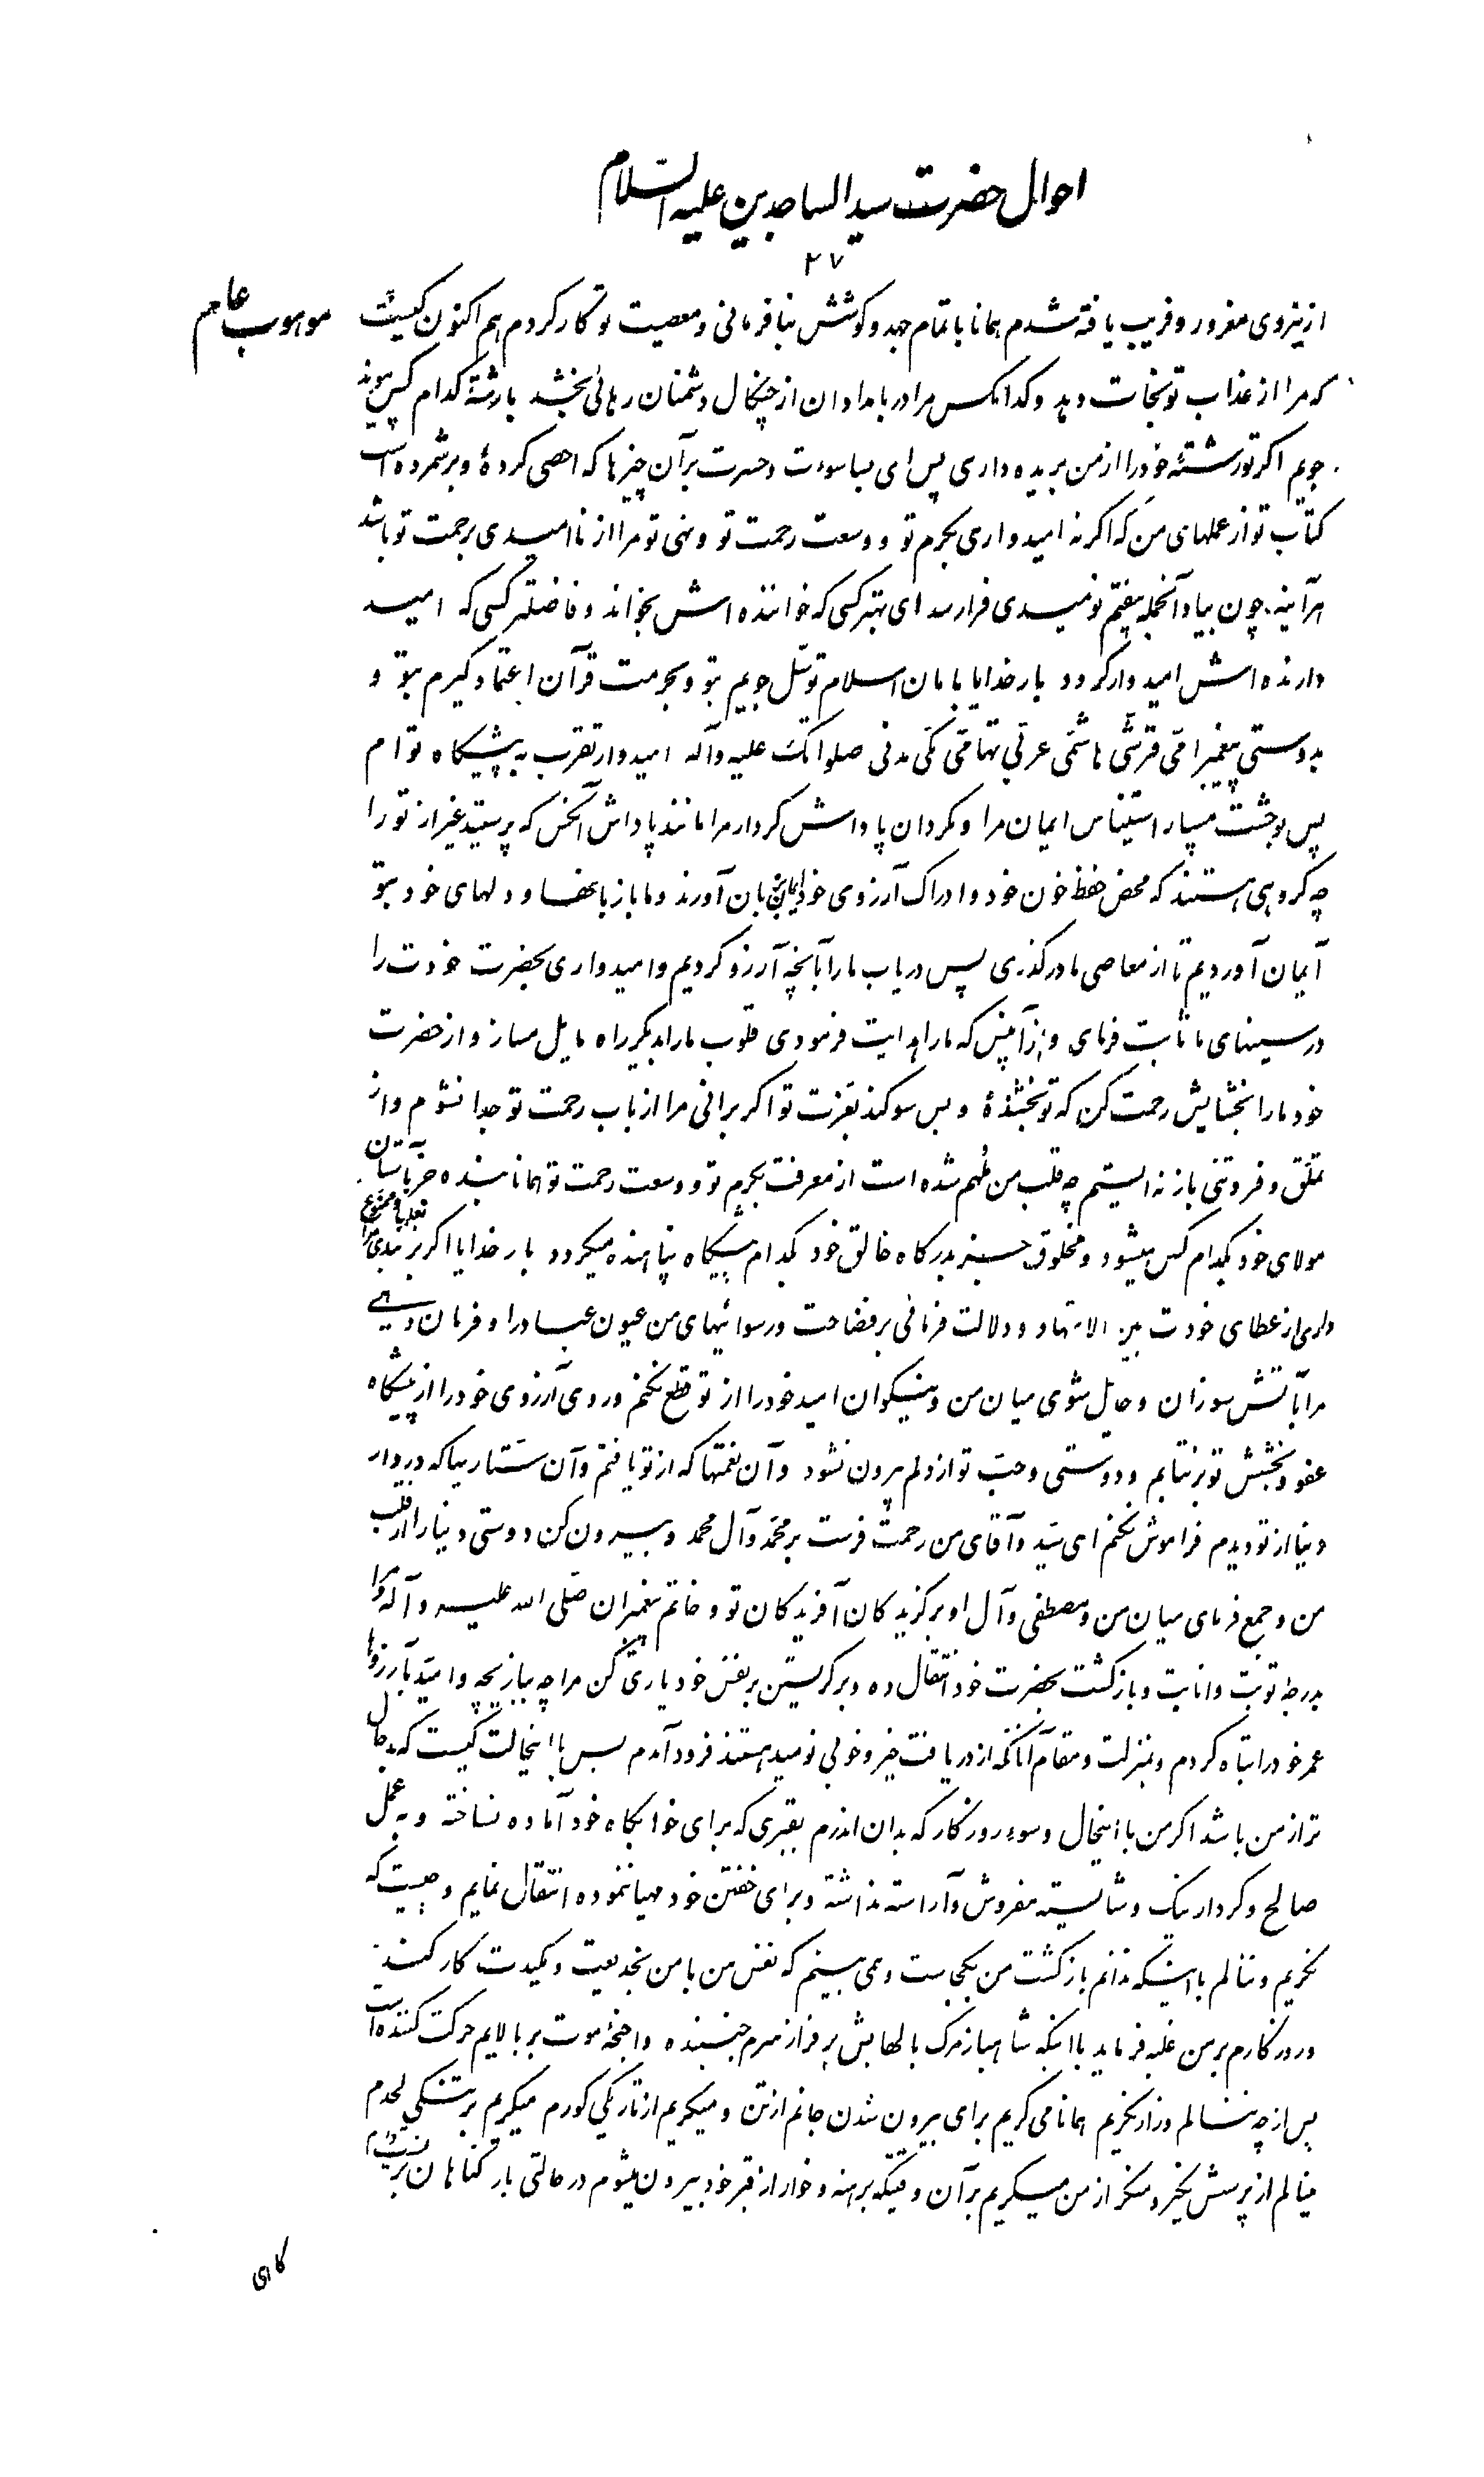 احوال حضرت سید الساجدین علیه السّلام
۲۷
از نیروی مغرور و فریب یافته شدم همانا با تمام جهد و کوشش بنافرمانی و معصیت تو کار کردم هم اکنون کیست
که مرا از عذاب تو نجات دهد و کدام کس مرا در بامدادان از چنکال دشمنان رهائی بخشد با رشتهٔ کدام کس پیوند
جویم اکر تو رشتهٔ خود را از من بریده داری پس ای بسا سوءت و حسرت بر آن چیزها که احصی کردهٔ و بر شمرده است
کتاب تو از عملهای من که اکر نه امیدواری بکرم تو و وسعت رحمت تو و نهی تو مرا از ناامیدی برحمت تو باشد
هر آینه چون بیاد آنجمله بیفتم نومیدی فرا رسد ای بهتر کسی که خواننده اش بخواند و فاضلتر کسی که امید
دارنده اش امیدوار کردد بار خدایا بامان اسلام توسّل جویم بتو و بحرمت قرآن اعتماد کیرم بتو و
بدوستی پیغمبر امّی قرشّی هاشمّی عربّی تهامّی مکّی مدنی صلواتک علیه و آله امیدوار تقرب به پیشکاه توام
پس بوحشت مسپار استیناس ایمان مرا و مکردان پاداش کردار مرا مانند پاداش آنکس که پرستید غیر از تو را
چه کروهی هستند که محض حفظ خون خود و ادراک آرزوی خود ایمان بزبان آورند و ما با زبانها و دلهای خود بتو
ایمان آوردیم تا از معاصی ما درکذری پس دریاب ما را بآنچه آرزو کردیم و امیدواری بحضرت خودت را
در سینهای ما ثابت فرمای و از آن پس که ما را هدایت فرمودی قلوب ما را بدیکر راه مایل مساز و از حضرت
خود ما را بخشایش رحمت کن که تو بخشندهٔ و بس سوکند بعزت تو اکر برانی مرا از باب رحمت تو جدا نشوم و از
تملّق و فروتنی باز نه ایستم چه قلب من مُلهم شده است از معرفت بکرم تو و وسعت رحمت تو همانا بنده جز بآستان
مولای خود بکدام کس میشود و مخلوق جز بدرکاه خالق خود بکدام پیشکاه پناهنده میکردد بار خدایا اکر بر بندی مرا
داری از عطای خودت بین الاشهاد و دلالت فرمائی بر فضاحت و رسوائیهای من عیون عباد را و فرمان دهی
مرا بآتش سوزان و حایل شوی میان من و نیکوان امید خود را از تو قطع نکنم و روی آرزوی خود را از پیشکاه
عفو و بخشش تو بر نتابم و دوستی و حبّ تو از دلم بیرون نشود و آن نعمتها که از تو یافتم و آن ستّاریها که در دار
دنیا از تو دیدم فراموش نکنم ای سیّد و آقای من رحمت فرست بر محمّد و آل محمد و بیرون کن دوستی دنیا را از قلب
من و جمع فرمای میان من و مصطفی و آل او برکزیدکان آفریدکان تو و خاتم پیغمبران صلّی الله علیه و آله و مرا
بدرجه توبت و انابت و بازکشت بحضرت خود انتقال ده و بر کریستن بر نفس خود یاری کن مرا چه ببازیچه و امید بآرزوها
عمر خود را تباه کردم و بمنزلت و مقام آنانکه از دریافت خیر و خوبی نومید هستند فرود آمدم پس با اینحالت کیست که بدحال
تر از من باشد اکر من با اینحال و سوء روزکار که بدان اندرم بقبری که برای خوابکاه خود آماده نساخته و به عمل
صالح و کردار نیک و شایسته مفروش و آراسته نداشته و برای خفتن خود مهیا ننموده انتقال نمایم و چیست که
نکریم و ننالم با اینکه ندانم بازکشت من بکجاست و می بینم که نفس من با من بخدیعت و مکیدت کار کند
و روزکارم بر من غلبه فرماید با اینکه شاهباز مرک بالهایش بر فراز سرم جنبنده و اجنحهٔ موت بر بالایم حرکت کننده است
پس از چه ننالم و زار نکریم همانا می کریم برای بیرون شدن جانم از تن و میکریم از تاریکی کورم میکریم بر تنکی لحدم
مینالم از پرسش نکیر و منکر از من میکریم بر آن وقتیکه برهنه و خوار از قبر خود بیرون میشوم در حالتی بار کناهان بر پشت
کاهی